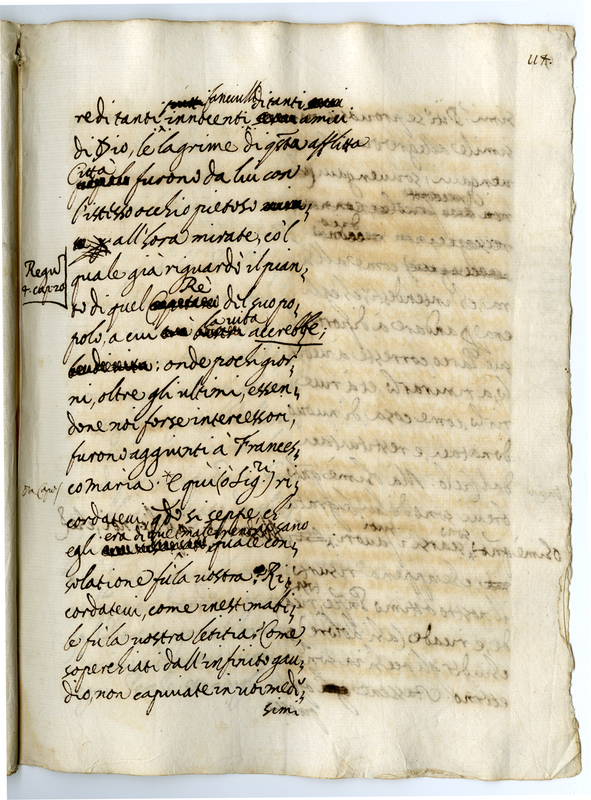 114.
fanciulli di tanti
re di tanti innocenti amici
di Dio, e le lagrime di q̃sta afflitta
Città
furono da lui con
l'istesso occhio pietoso
all'hora mirate, co'l
quale già riguardò il pian-
Regũ
4. cap. 20
Rè
to di quel del suo po-
la vita
polo, a cui accrebbe;
: onde pochi gior-
ni, oltre gli ultimi, essen-
done noi forse intercessori,
furono aggiunti a Frances-
co maria. E qui (ò Sig.ri) ri-
cordatevi, qdo si seppe, ch'
era di quel male sano
egli quale con-
solatione fù la vostra? Ri-
cordatevi, come inestimabi-
le fù la vostra letitia? Come,
soperchiati dall'infinito gau-
dio, non capivate in voi medẽ-
simi